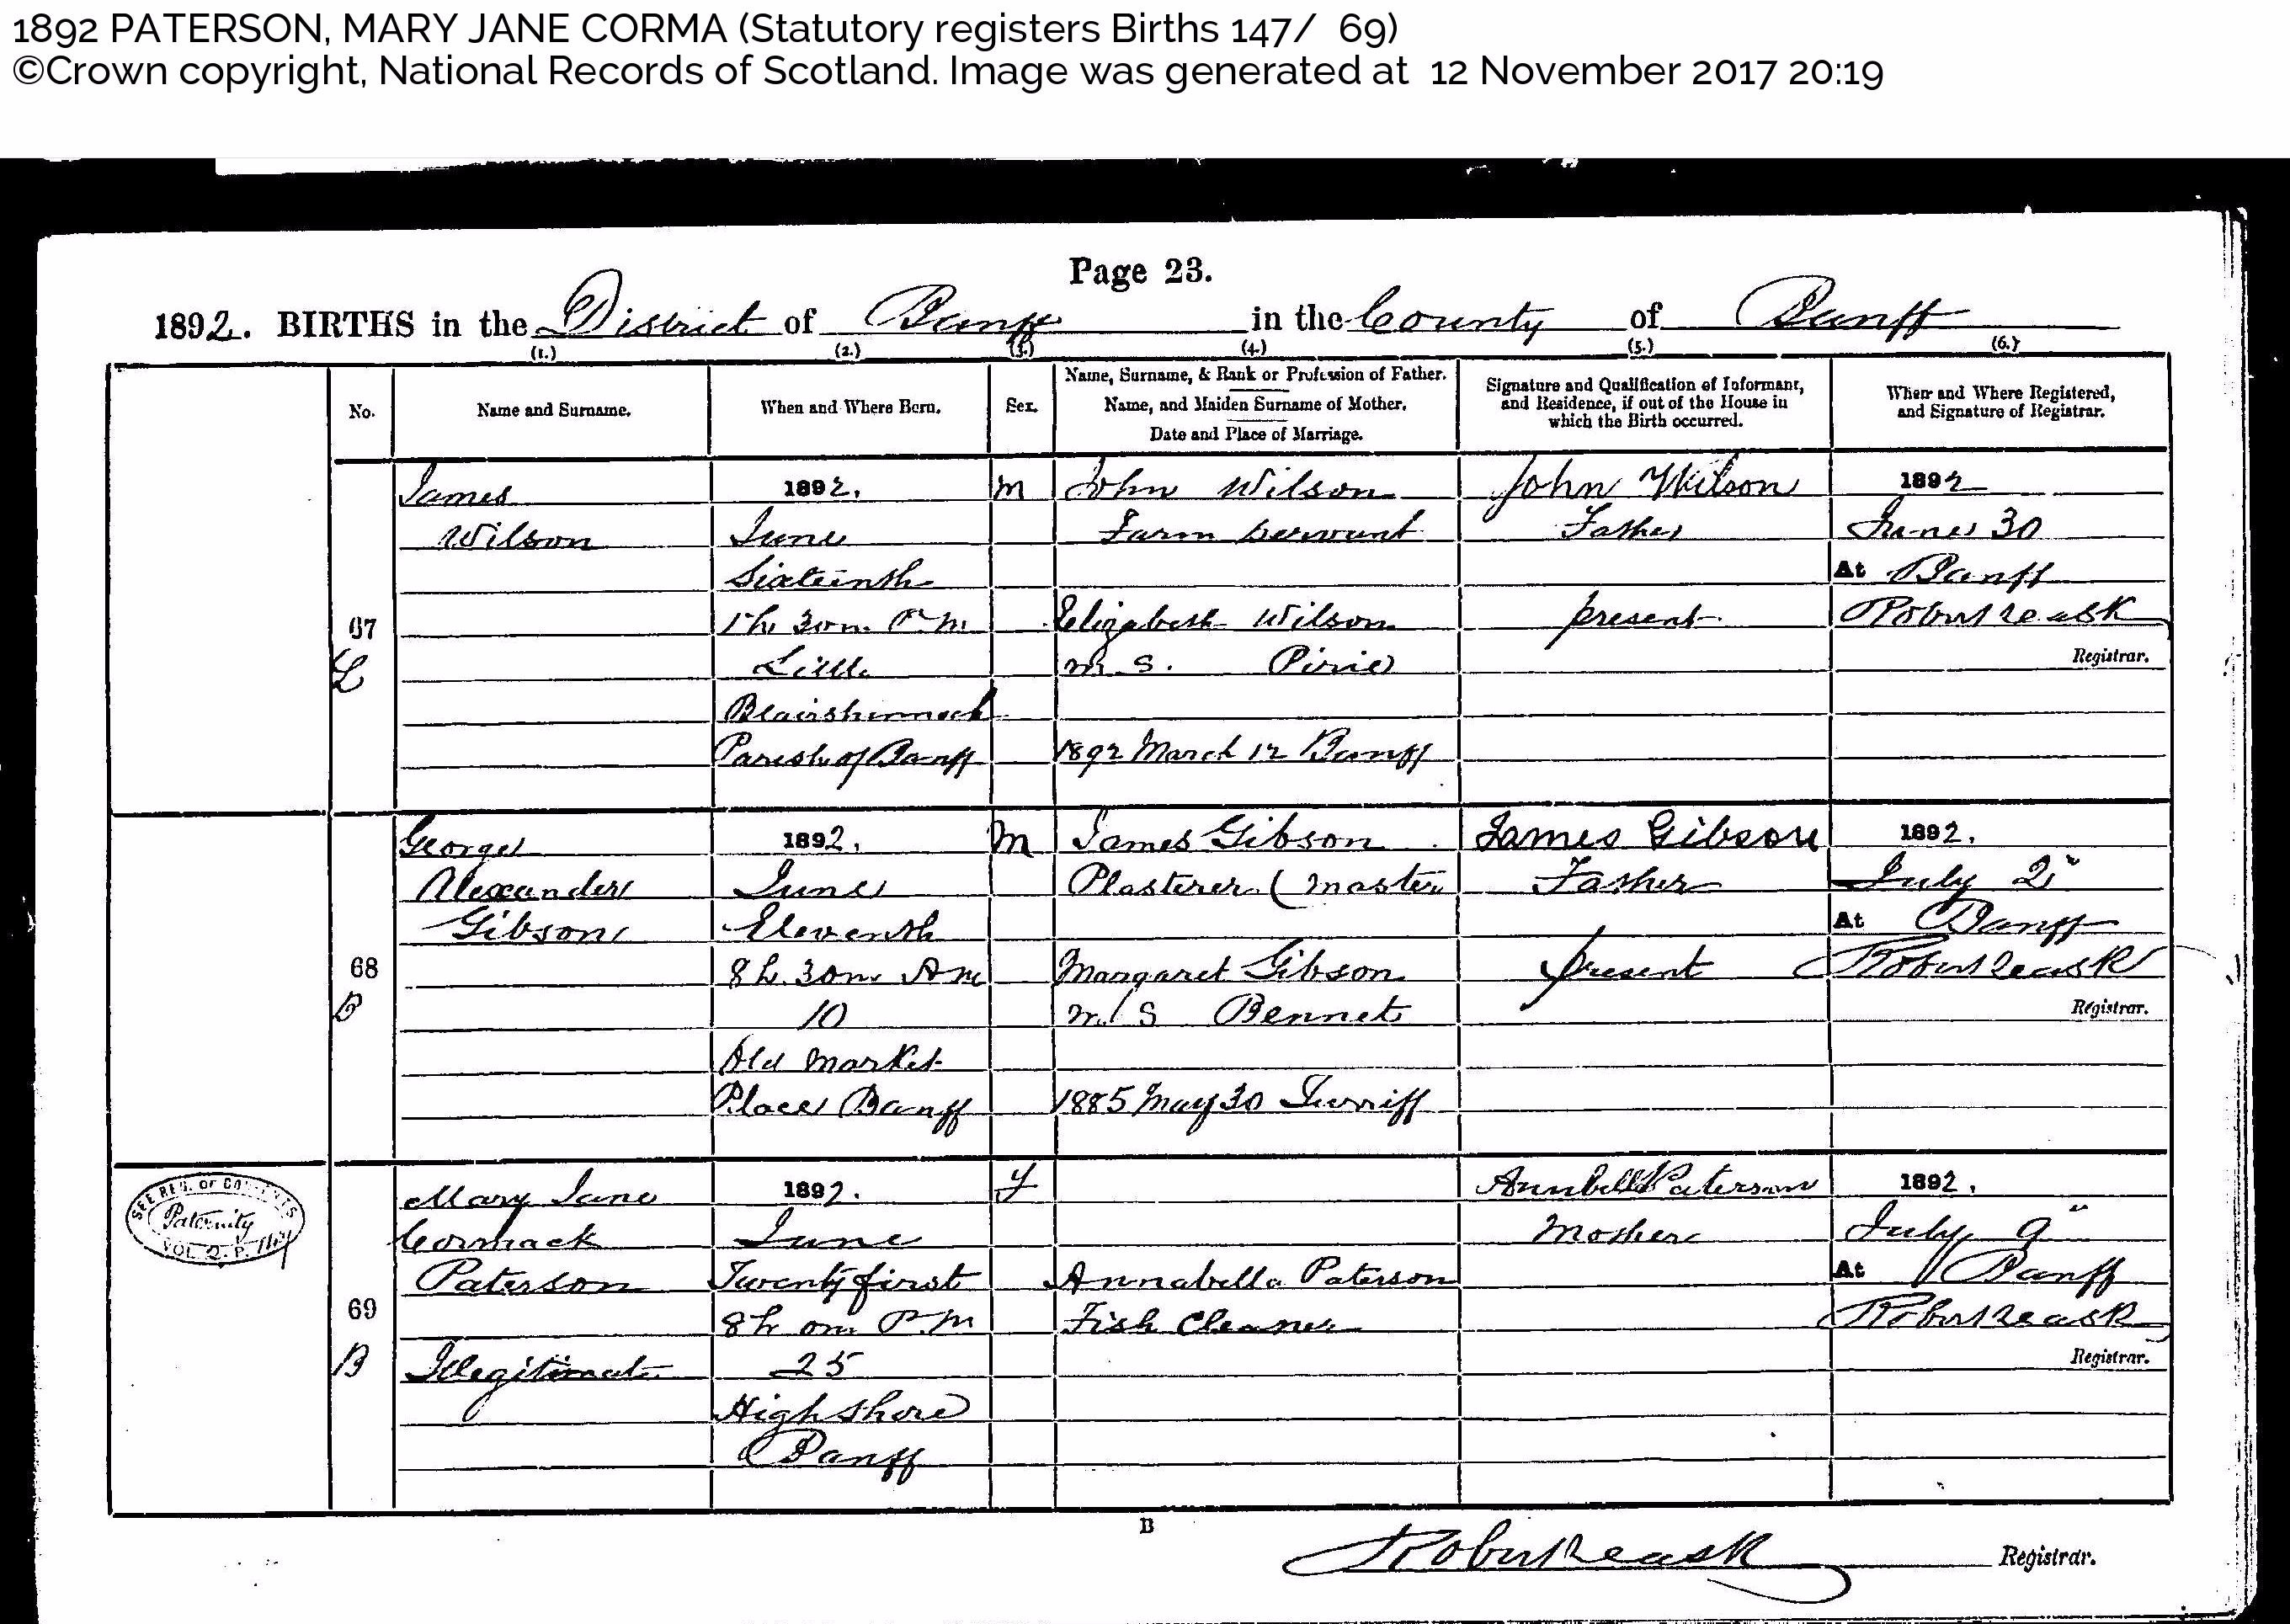 1892 PATERSON, MARY JANE CORMA (Statutory registers Births 147/ 69)
©Crown copyright, National Records of Scotland. Image was generated at 12 November 2017 20:19
Page 23.
1892. BIRTHS in the District of Banff in the County of Banff
(1.) (2.) (3.) (4.) (5.) (6.)
No.
Name and Surname.
When and Where Born.
Sex.
Name, Surname, & Rank or Profession of Father.
Name, and Maiden Surname of Mother.
Date and Place of Marriage.
Signature and Qualification of Informant,
and Residence, if out of the House in
which the Birth occurred.
When and Where Registered,
and Signature of Registrar.
67
L
James
Wilson
1892.
June
Sixteenth
1h 30m P.M.
Little
Blairshinnoch
Parish of Banff
M
John Wilson
Farm Servant
Elizabeth Wilson
m. s. Pirie
1892 March 12 Banff
John Wilson
Father
present
1892
June 30
At Banff
Robert Reask
Registrar.
68
B
George
Alexander
Gibson
1892.
June
Eleventh
8h. 30m A M
10
Old Market
Place Banff
M
James Gibson
Plasterer (Master
Margaret Gibson
m/s Bennet
1885 May 30 Turriff
James Gibson
Father
present
1892.
July 2"
At Banff
Robert Reask
Registrar.
SEE REG. OF COR
Paternity
VOL. 2. P.
69
B
Mary Jane
Cormack
Paterson
Illegitimate
1892.
June
Twenty first
8h 0m P.M
25
High Shore
Banff
F
Annabella Paterson
Fish Cleaner
Annabella Paterson
Mother
1892.
July 9"
At Banff
Robert Reask
Registrar.
B
Robert Reask Registrar.